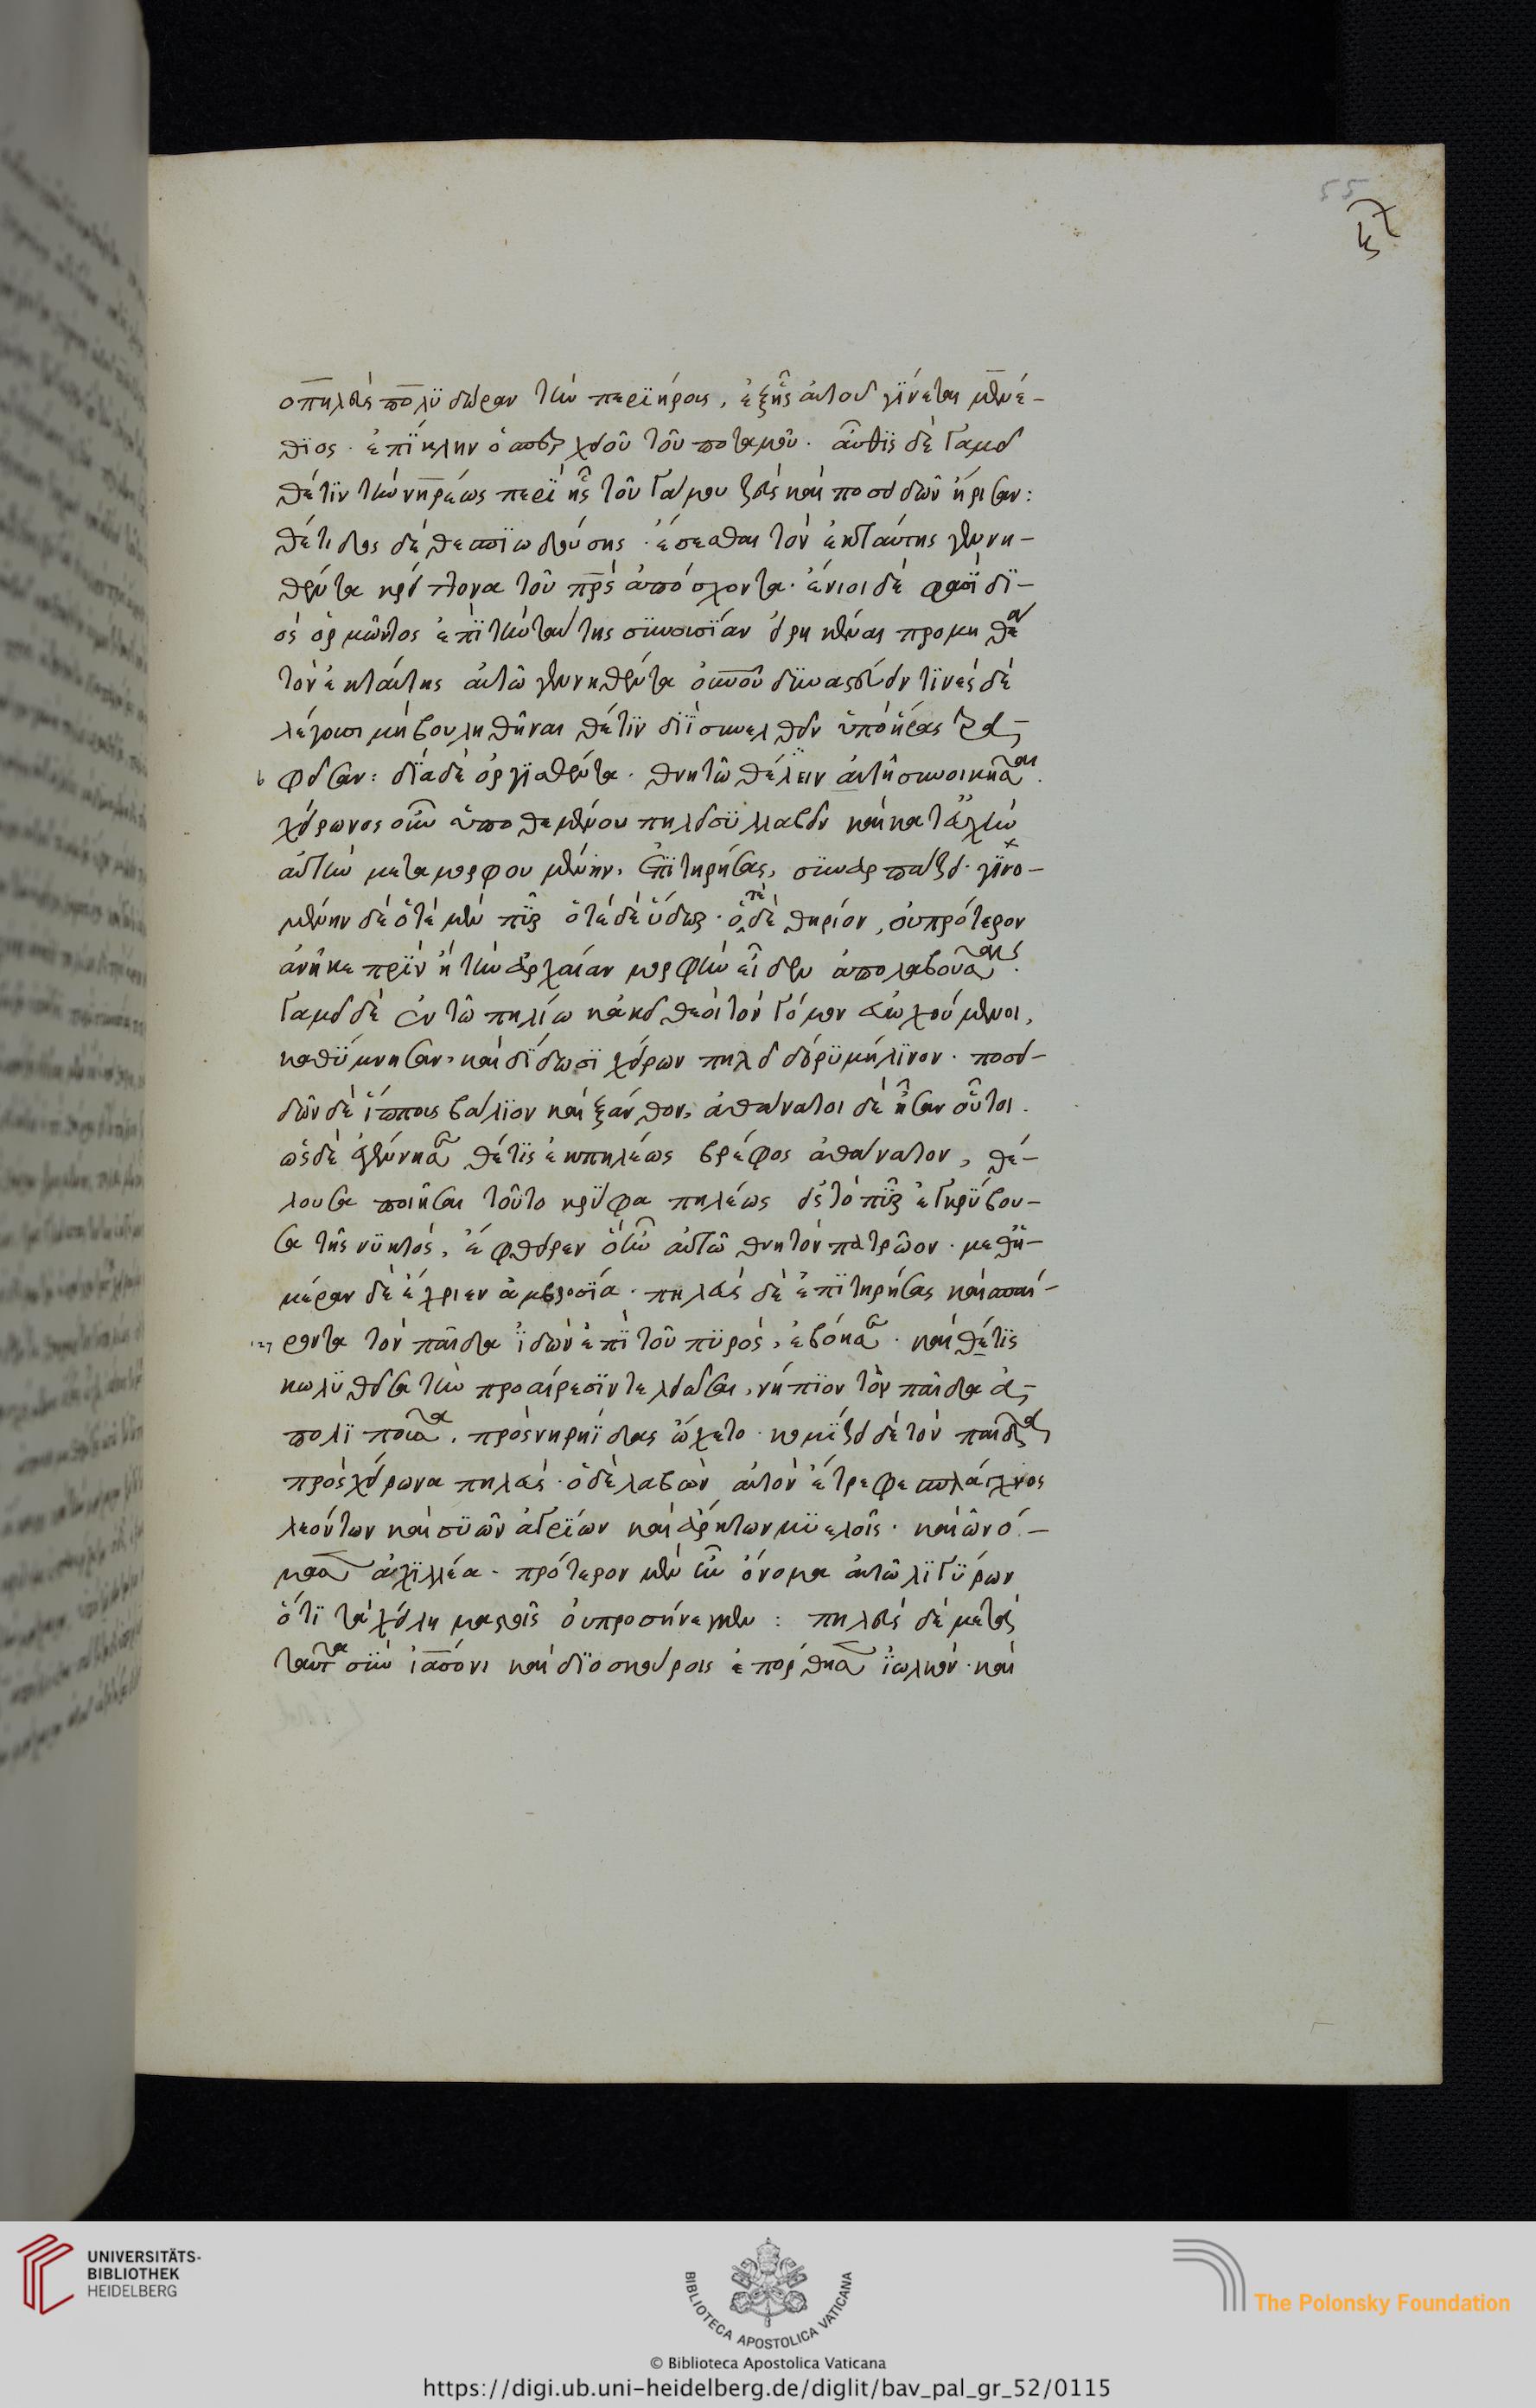 55
ὁ πηλεὺς πολυδώραν τὴν περιήρους, ἐξ ἧς αὐτοῦ γίνεται μενέ-
θιος. ἐπίκλην ὁ σπερχειοῦ τοῦ ποταμοῦ. αὖθις δὲ γαμεῖ
θέτιν τὴν νηρέως περὶ ἧς τοῦ γάμου ζεὺς καὶ ποσειδῶν ἤρισαν:
θέτιδος δὲ θεσπιωδούσης. ἔσεσθαι τὸν ἐκ ταύτης γεννη-
θέντα κρείττονα τοῦ πρς ἀπόσχοντα. ἔνιοι δέ φασι δι-
ὸς ὁρμῶντος ἐπὶ τὴν ταύτης συνουσίαν εἰρηκέναι προμηθέα
τὸν ἐκ ταύτης αὐτῶ γεννηθέντα οὐνοῦ δυναστεύειν τινὲς δὲ
λέγουσι μὴ βουληθῆναι θέτιν διῒ συνελθεῖν ὑπὸ ἥρας τρα-
φεῖσαν: δία δὲ ὀργισθέντα. θνητῶ θέλειν αὐτὴ συνοικῆσαι.
χείρωνος οὖν ὑποθεμένου πηλεῖ συλλαβεῖν καὶ κατασχεῖν
αὐτὴν μεταμορφουμένην, ἐπιτηρήσας, συναρπάζει. γινο-
μένην δὲ ὁτὲ μὲν πῦρ ὁτὲ δὲ ὕδωρ. ὁτὲ δὲ θηρίον, οὐ πρότερον
ἀνῆκε πρὶν ἢ τὴν ἀρχαίαν μορφὴν εἶδεν ἀπολαβοῦσαν.
γαμεῖ δὲ ἐν τῶ πηλίω κἀκεῖ θεοὶ τὸν γάμον εὐωχούμενοι,
καθύμνησαν, καὶ δίδωσι χείρων πηλεῖ δόρυ μήλινον. ποσει-
δῶν δὲ ἵππους βαλίον καὶ ξάνθον, ἀθάνατοι δὲ ἦσαν οὗτοι.
ὡς δὲ ἐγέννησε θέτις ἐκ πηλέως βρέφος ἀθάνατον, θέ-
λουσα ποιῆσαι τοῦτο κρύφα πηλέως εἰς τὸ πῦρ ἐγκρύβου-
σα τῆς νυκτὸς, ἔφθειρεν ὃ ἦν αὐτῶ θνητὸν πατρῶον. μεθ' ἡ-
μέραν δὲ ἔχριεν ἀμβροσία. πηλεὺς δὲ ἐπιτηρήσας καὶ σπαί-
ροντα τὸν παῖδα ἰδὼν ἐπὶ τοῦ πυρὸς, ἐβόησε. καὶ θέτις
κωλυθεῖσα τὴν προαίρεσιν τελειῶσαι, νήπιον τὸν παῖδα ἀ-
πολιποῦσα. πρὸς νηρηίδας ὤχετο. κομίζει δὲ τὸν παῖδα
πρὸς χείρωνα πηλεὺς. ὁ δὲ λαβὼν αὐτὸν ἔτρεφε σπλάγχνοις
λεόντων καὶ συῶν ἀγρίων καὶ ἄρκτων μυελοῖς. καὶ ὠνό-
μασεν ἀχιλλέα. πρότερον μὲν ἦν ὄνομα αὐτῶ λιγύρων
ὅτι τὰ χείλη μαστοῖς οὐ προσήνεγκεν: πηλεὺς δὲ μετὰ
ταῦτα σὺν ἰάσονι καὶ διοσκούροις ἐπόρθησεν ἰωλκόν. καὶ
UNIVERSITÄTS-
BIBLIOTHEK
HEIDELBERG
BIBLIOTECA APOSTOLICA VATICANA
© Biblioteca Apostolica Vaticana
The Polonsky Foundation
https://digi.ub.uni-heidelberg.de/diglit/bav_pal_gr_52/0115